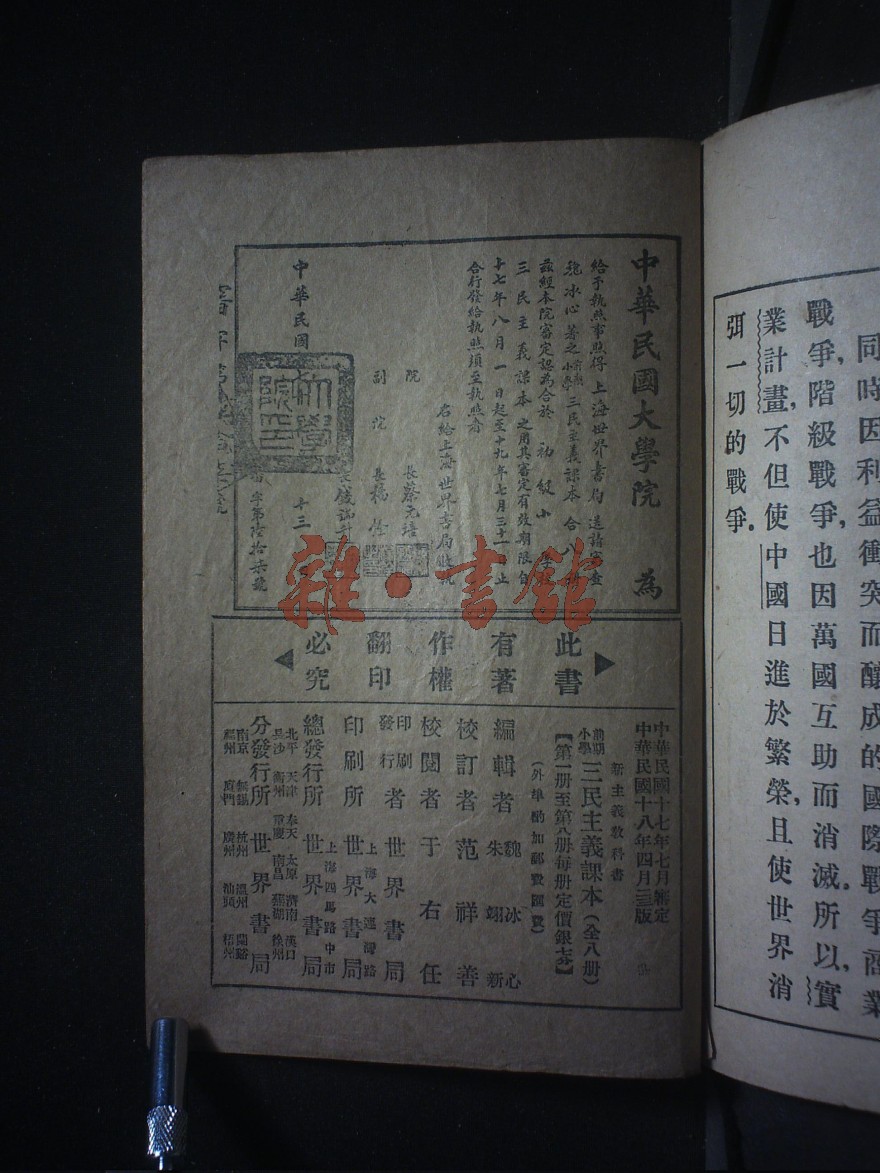 同時因利益衝突而釀成的國際戰爭商業
戰爭，階級戰爭，也因萬國互助而消滅。所以，實
業計畫，不但使中國日進於繁榮，且使世界消
弭一切的戰爭。
中華民國大學院 為
給予執照事照得上海世界書局送請審查
魏冰心著之前期小學三民主義課本合八冊
茲經本院審定認為合於初級小學
三民主義課本之用其審定有效期限自
十七年八月一日起至十九年七月三十一止
合行發給執照須至執照者
右給上海世界書局收執
院長蔡元培
副院長楊銓
中華民國 十三
字第陸拾柒號
雜·書館
此書
有著
作權
翻印
必究
中華民國十七年七月審定
中華民國十八年四月三版
新主義教科書
前期小學三民主義課本（全八册）
【第一册至第八册每册定價銀
（外埠酌加郵費匯費）
編輯者 魏冰心 朱翊新
校訂者 范祥善
校閱者 于右任
印刷發行者 世界書局
印刷所 上海大連灣路 世界書局
總發行所 上海四馬路中市 世界書局
分發行所 世界書局
北平 天津 奉天 太原 濟南 漢口
長沙 衢州 重慶 南昌 蕪湖 徐州
南京 無錫 杭州 溫州 蘭谿
福州 厦門 廣州 汕頭 梧州